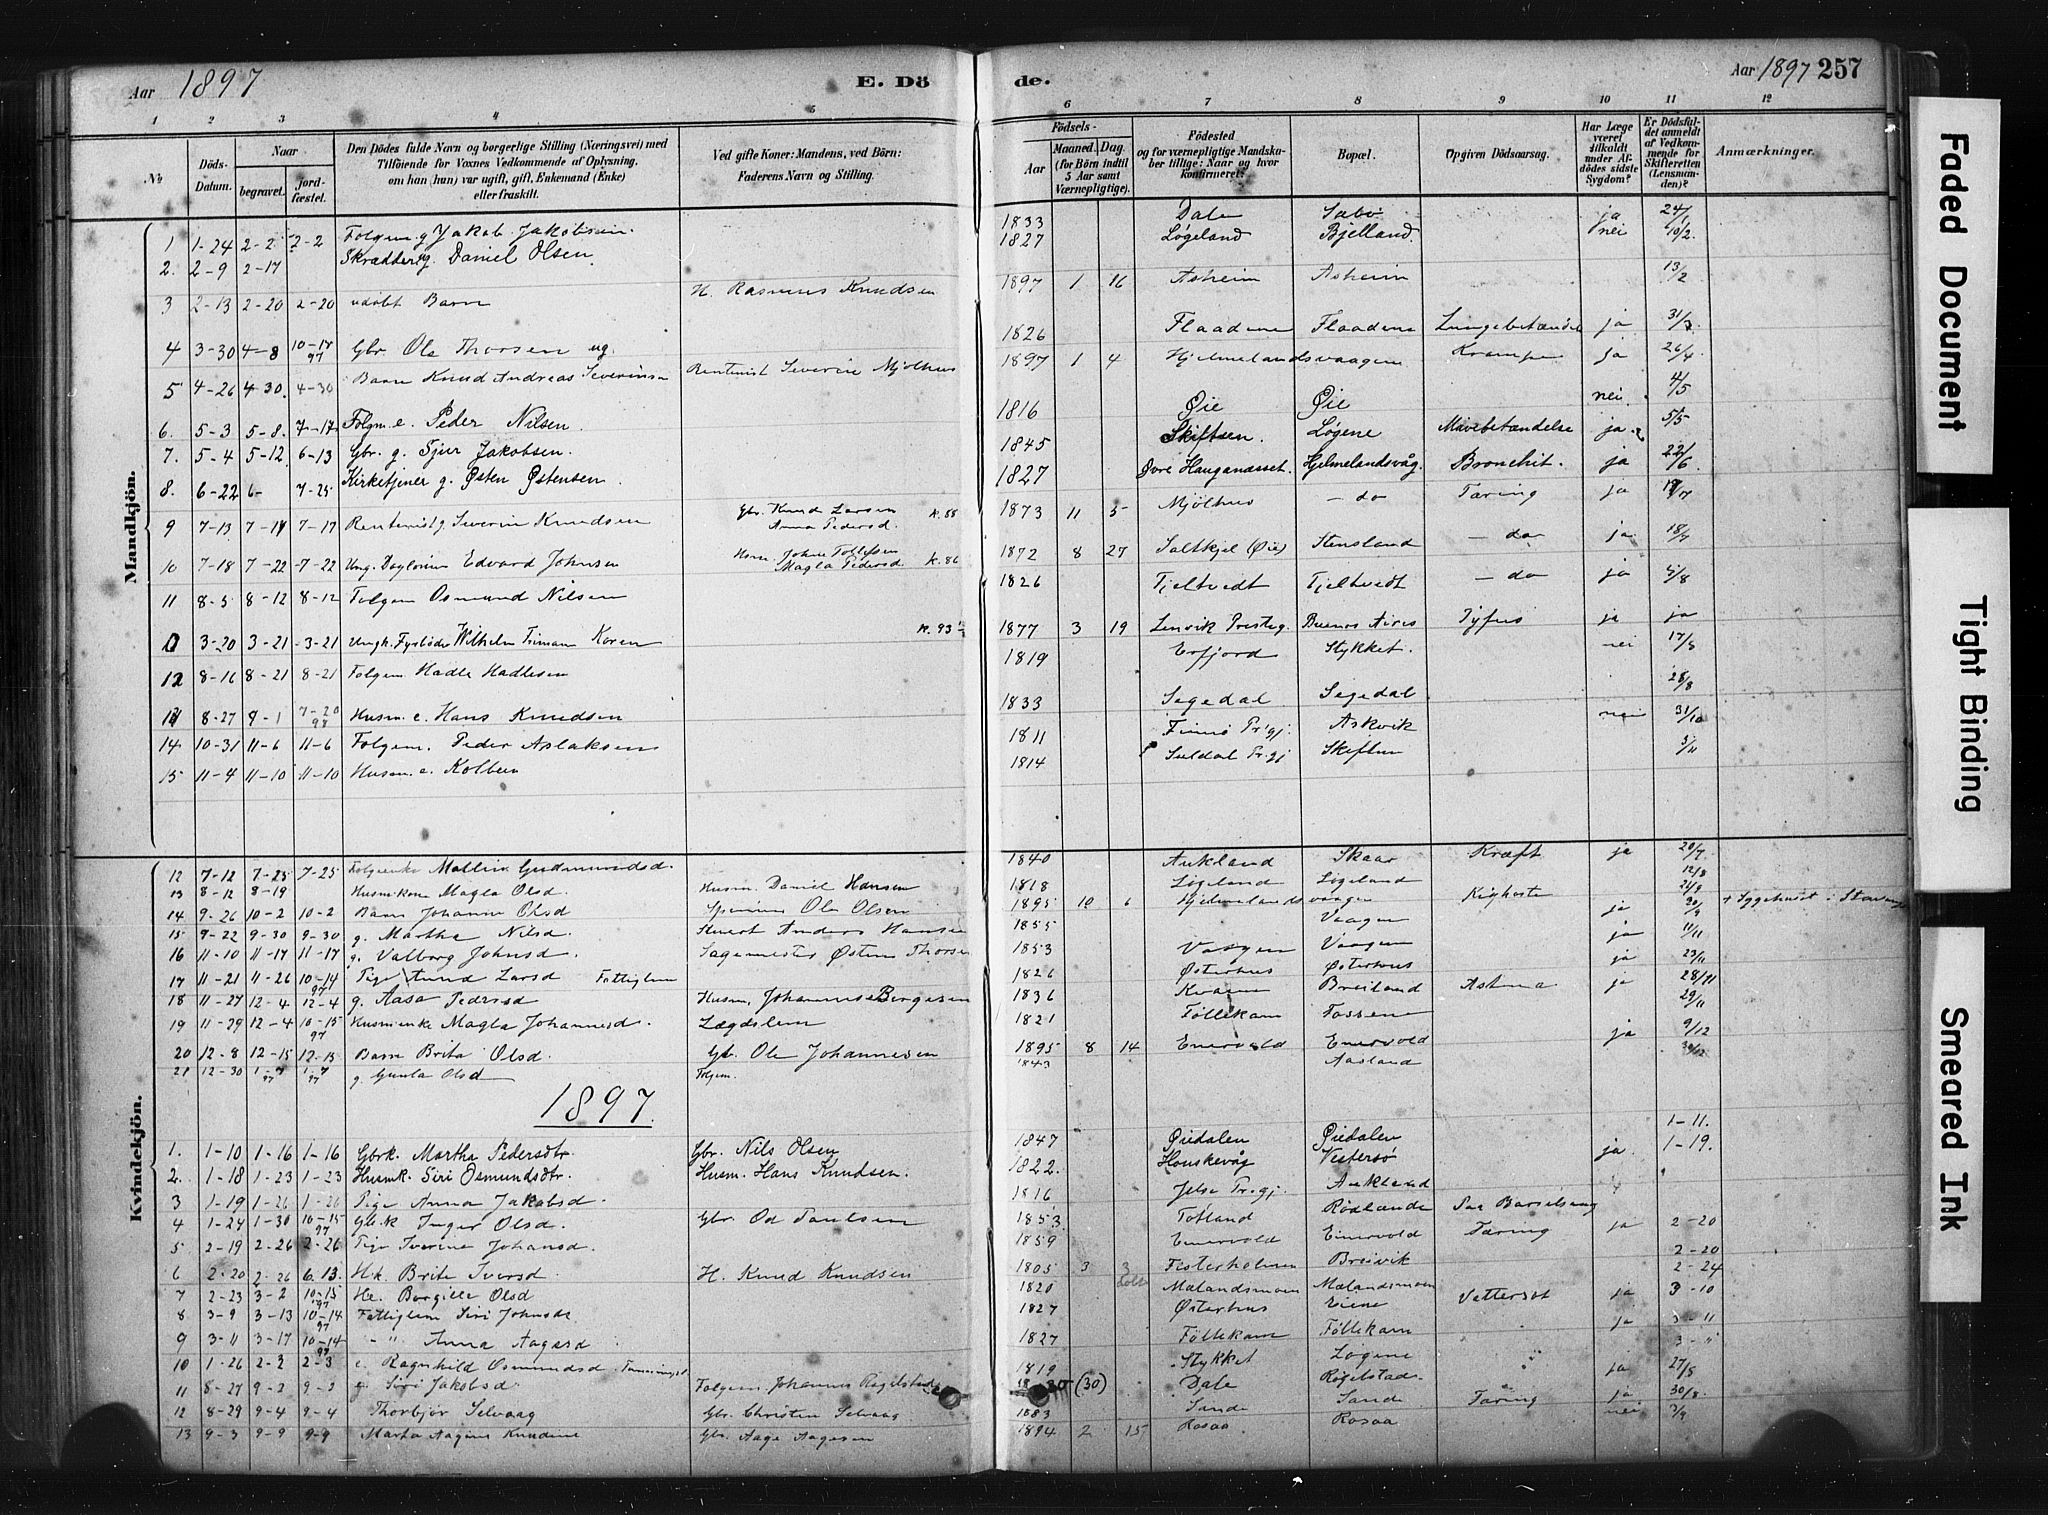 Aar 1897 E. Dö de. Aar 1897 257
1 2 3 4 5 6 7 8 9 10 11 12
No
Döds-Datum.
Naar
begravet.
Jord-fæstet.
Den Dödes fulde Navn og borgerlige Stilling (Næringsvei) med
Tilföiende for Voxnes Vedkommende af Oplysning,
om han (hun) var ugift, gift, Enkemand (Enke)
eller fraskilt.
Ved gifte Koner: Mandens, ved Börn:
Faderens Navn og Stilling.
Födsels-
Aar
Maaned. Dag
(for Börn indtil
5 Aar samt
Værnepligtige).
Födested
og for værnepligtige Mandska-
ber tillige: Naar og hvor
konfirmeret?
Bopæl.
Opgiven Dödsaarsag.
Har Læge
været
tilkaldt
under Af-
dödes sidste
Sygdom?
Er Dödsfal-
det anmeldt
af Vedkom-
mende for
Skifteretten
(Lensman-
den)?
Anmærkninger.
Mandkjön.
1 1-24 2-2 2-2 Folgem. g Jakob Jakobsen. 1833 Dale Sæbø ja 24/1
2. 2-9 2-17 Skrædder g. Daniel Olsen 1827 Løgeland Bjelland nei 10/2
3 2-13 2-20 2-20 udøbt Barn H. Rasmus Knudsen 1897 1 16 Asheim Asheim 13/2
4 3-30 4-8 10-14 97 Gbr. Ole Thorsen ug. 1826 Flaadene Flaadene Lungebetændel ja 31/3
5 4-26 4-30 4-30 Barn Knud Andreas Severinsen Rentenist Severin Mjølhus 1897 1 4 Hjelmelandsvaagen Krampe ja 26/4
6. 5-3 5-8 7-17 Folgm. e. Peder Nilsen. 1816 Øie Øie nei 4/5
7. 5-4 5-12 6-13 Gbr. g. Sjur Jakobsen. 1845 Skiftsen. Løgene Mavebetændelse ja 5/5
8. 6-22 6- 7-25 Kirketjener g. Østen Østensen. 1827 Øvre Hauganæsset. Hjelmelandsvåg. Bronchit. ja 22/6
9 7-13 7-17 7-17 Rentenist g. Severin Knudsen Gbr. Knud Larsen Anna Pedersd. k. 88 1873 11 5 Mjølhus - do Tæring ja 17/7
10 7-18 7-22 7-22 Ung. Edvard Johnsen Hsm. John Tollefsen Magla Pedersd k. 86 1872 8 27 Saltkjel (Øie) Stensland - do ja 18/7
11 8-5 8-12 8-12 Folgem Osmund Nilsen 1826 Tjeltvedt Tjeltvedt - do ja 5/8
3-20 3-21 3-21 Ungk. Wilhelm Koren k. 93 1877 3 19 Lenvik Presteg. Buenos Aires Tyfus ja ja
12 8-16 8-21 8-21 Folgem Hadle Hadlesen 1819 Erfjord Stykket. nei 17/8
8-27 9-1 7-20 98 Husm. e. Hans Knudsen 1833 Segedal Segedal 28/8
14 10-31 11-6 11-6 Folgem. Peder Aslaksen 1811 Finnø Pr.gj. Askvik nei 31/10
15 11-4 11-10 11-10 Husm. e. Kolbein 1814 Suldal Pr.gj Skiftun 5/11
Kvindekjön.
12 7-12 7-25 7-25 Folgeenke Malline Gudmundsd. 1840 Aukland Skaar Kræft ja 20/7
13 8-12 8-19 Husmkone Magla Olsd. Husm. Daniel Hansen 1818 Løgeland Løgeland 12/8
14 9-26 10-2 10-2 Barn Johanne Olsd Ole Olsen 1895 10 6 Hjelmelandsvaagen Kighoste
15 9-22 9-30 9-30 g. Martha Nilsd. Anders Hansen 1855 Vaagen ja + Sygehuset i Stavanger
16 11-10 11-17 11-17 g. Valborg Johnsd. Sagemester Østen Thorsen 1853 Vaagen Vaagen ja 11/11
17 11-21 11-26 10-14 97 Pige Larsd Fattiglem 1826 Østerhus Østerhus ja 23/11
18 11-27 12-4 12-4 g. Aasa Pedersd Husm. Johannes Børgesen 1836 Kvame Breiland Astma ja 28/11
19 11-29 12-4 10-15 97 Husmenke Magla Johannesd. Lægdslem 1821 Føllekam Fossene 29/11
20 12-8 12-15 12-15 Barn Brita Olsd. Gb. Ole Johannesen 1895 8 14 Enervold Enervold ja 9/12
21 12-30 1-7 97 1-7 97 g. Gunla Olsd Folgem. 1843 Aasland 30/12
1897.
1. 1-10 1-16 1-16 Gbrk. Martha Pedersdtr. Gbr. Nils Olsen 1847 Øiedalen Øiedalen 1-11.
2. 1-18 1-23 1-23 Husmk. Siri Osmundsdtr. Husm. Hans Knudsen. 1822. Houskevåg Vestersø ja. 1-19.
3 1-19 1-26 1-26 Pige Anna Jakobsd 1816 Jelse Pr.gj. Aukland
4 1-24 1-30 10-15 97 Gb.k Inger Olsd. Gbr. Od Paulsen 1853 Totland Rødlende Barselseng
5 2-19 2-26 2-26 Pige Iverine Johansd. 1859 Enervold Enervold Tæring ja 2-20
6 2-20 2-26 6.13. Hk. Brite Iversd. H. Knud Knudsen 1805 3 3 Fisterholmen Breivik 2-20
7 2-23 3-2 10-15 97 He. Borgille Olsd 1820 Mælandsmoen Mælandsmoen 2-24
8 3-9 3-13 10-14 97 Fattiglem Siri Johnsdr 1827 Østerhus Vattersot ja 3-10
9 3-11 3-17 10-14 97 - " Anna Aagesd 1827 Føllekam Føllekam ja 3-11
10 1-26 2-3 2-3 e. Ragnhild Osmundsd 1819 Stykket Løgene
11 8-27 9-2 9-2 g. Siri Jakobsd Folgem. Johannes Røgelstad 30 (30) Dale Røgelstad ja 27/8
12 8-29 9-4 9-4 Thorbjør Selvaag Gbr. Christen Selvaag 1883 Sande Sande Tæring ja 30/8
13 9-3 9-9 9-9 Marta Aagine Gbr. Aage Aagesen 1894 2 15 Rosaa Rosaa nei 3/9
Faded Document
Tight Binding
Smeared Ink